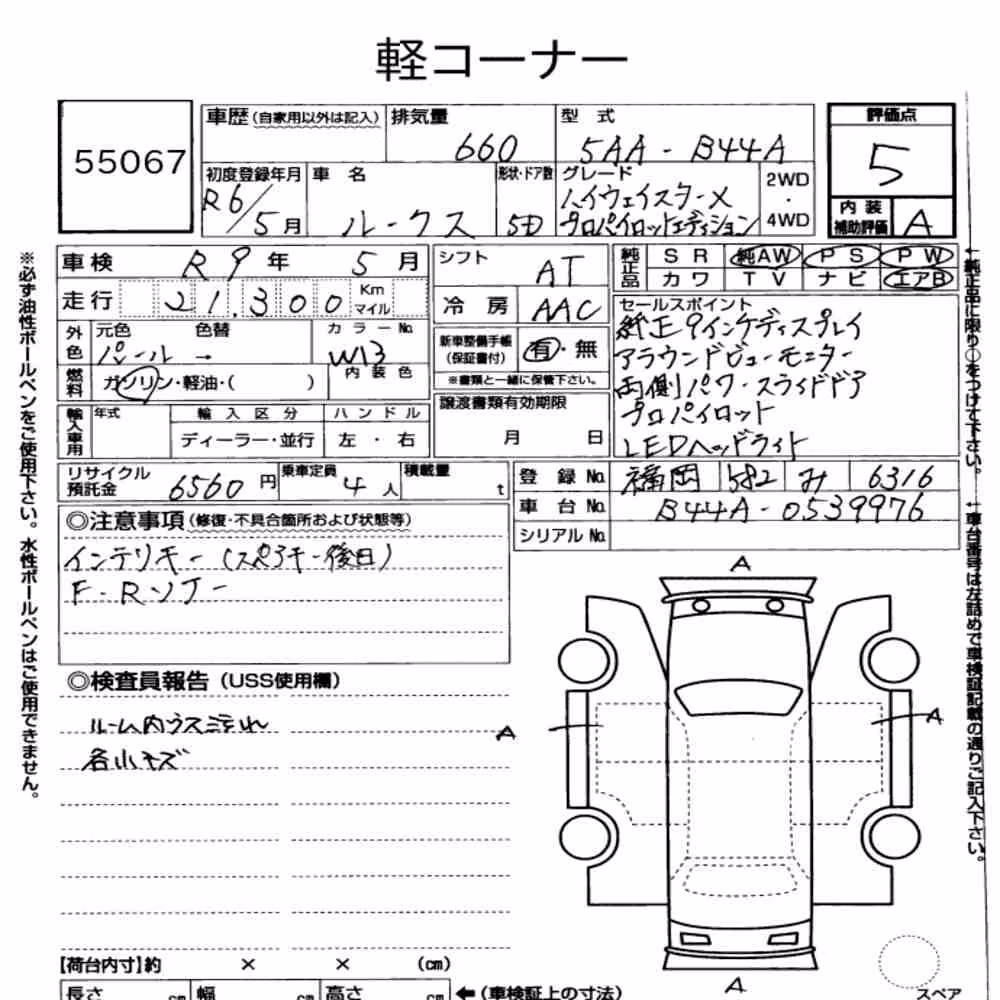 軽コーナー
55067
車歴 (自家用以外は記入) 排気量 660
型式 5AA-B44A
評価点 5
初度登録年月 R6/5月
車名 ルークス
形状・ドア数 5D
グレード ハイウェイスターX
プロパイロットエディション
2WD・4WD
内装補助評価 A
車検 R9年 5月
シフト AT
純正品 SR 純AW PS PW
カワ TV ナビ エアB
走行 21,300 Km マイル
冷房 AAC
外色 元色 パール 色替 → カラーNo. W13
内装色
新車整備手帳(保証書付) 有・無
※書類と一緒に保管下さい。
燃料 ガソリン・軽油・( )
セールスポイント
純正9インチディスプレイ
アラウンドビューモニター
両側パワースライドドア
プロパイロット
LEDヘッドライト
輸入車用 年式 輸入区分 ハンドル
ディーラー・並行 左・右
譲渡書類有効期限
月 日
リサイクル預託金 6560円 乗車定員 4人 積載量 t
登録No. 福岡 582 み 6316
車台No. B44A-0539976
シリアルNo.
◎注意事項 (修復・不具合箇所および状態等)
インテリキー(スペアキー後日)
F・Rソナー
◎検査員報告 (USS使用欄)
ルーム内ウスヨゴレ
各小キズ
A
A
A
A
【荷台内寸】約 × × (cm)
長さ cm 幅 cm 高さ cm ←(車検証上の寸法)
スペア
※必ず油性ボールペンをご使用下さい。水性ボールペンはご使用できません。
←純正品に限り○をつけて下さい。
←車台番号は左詰めで車検証記載の通りご記入下さい。